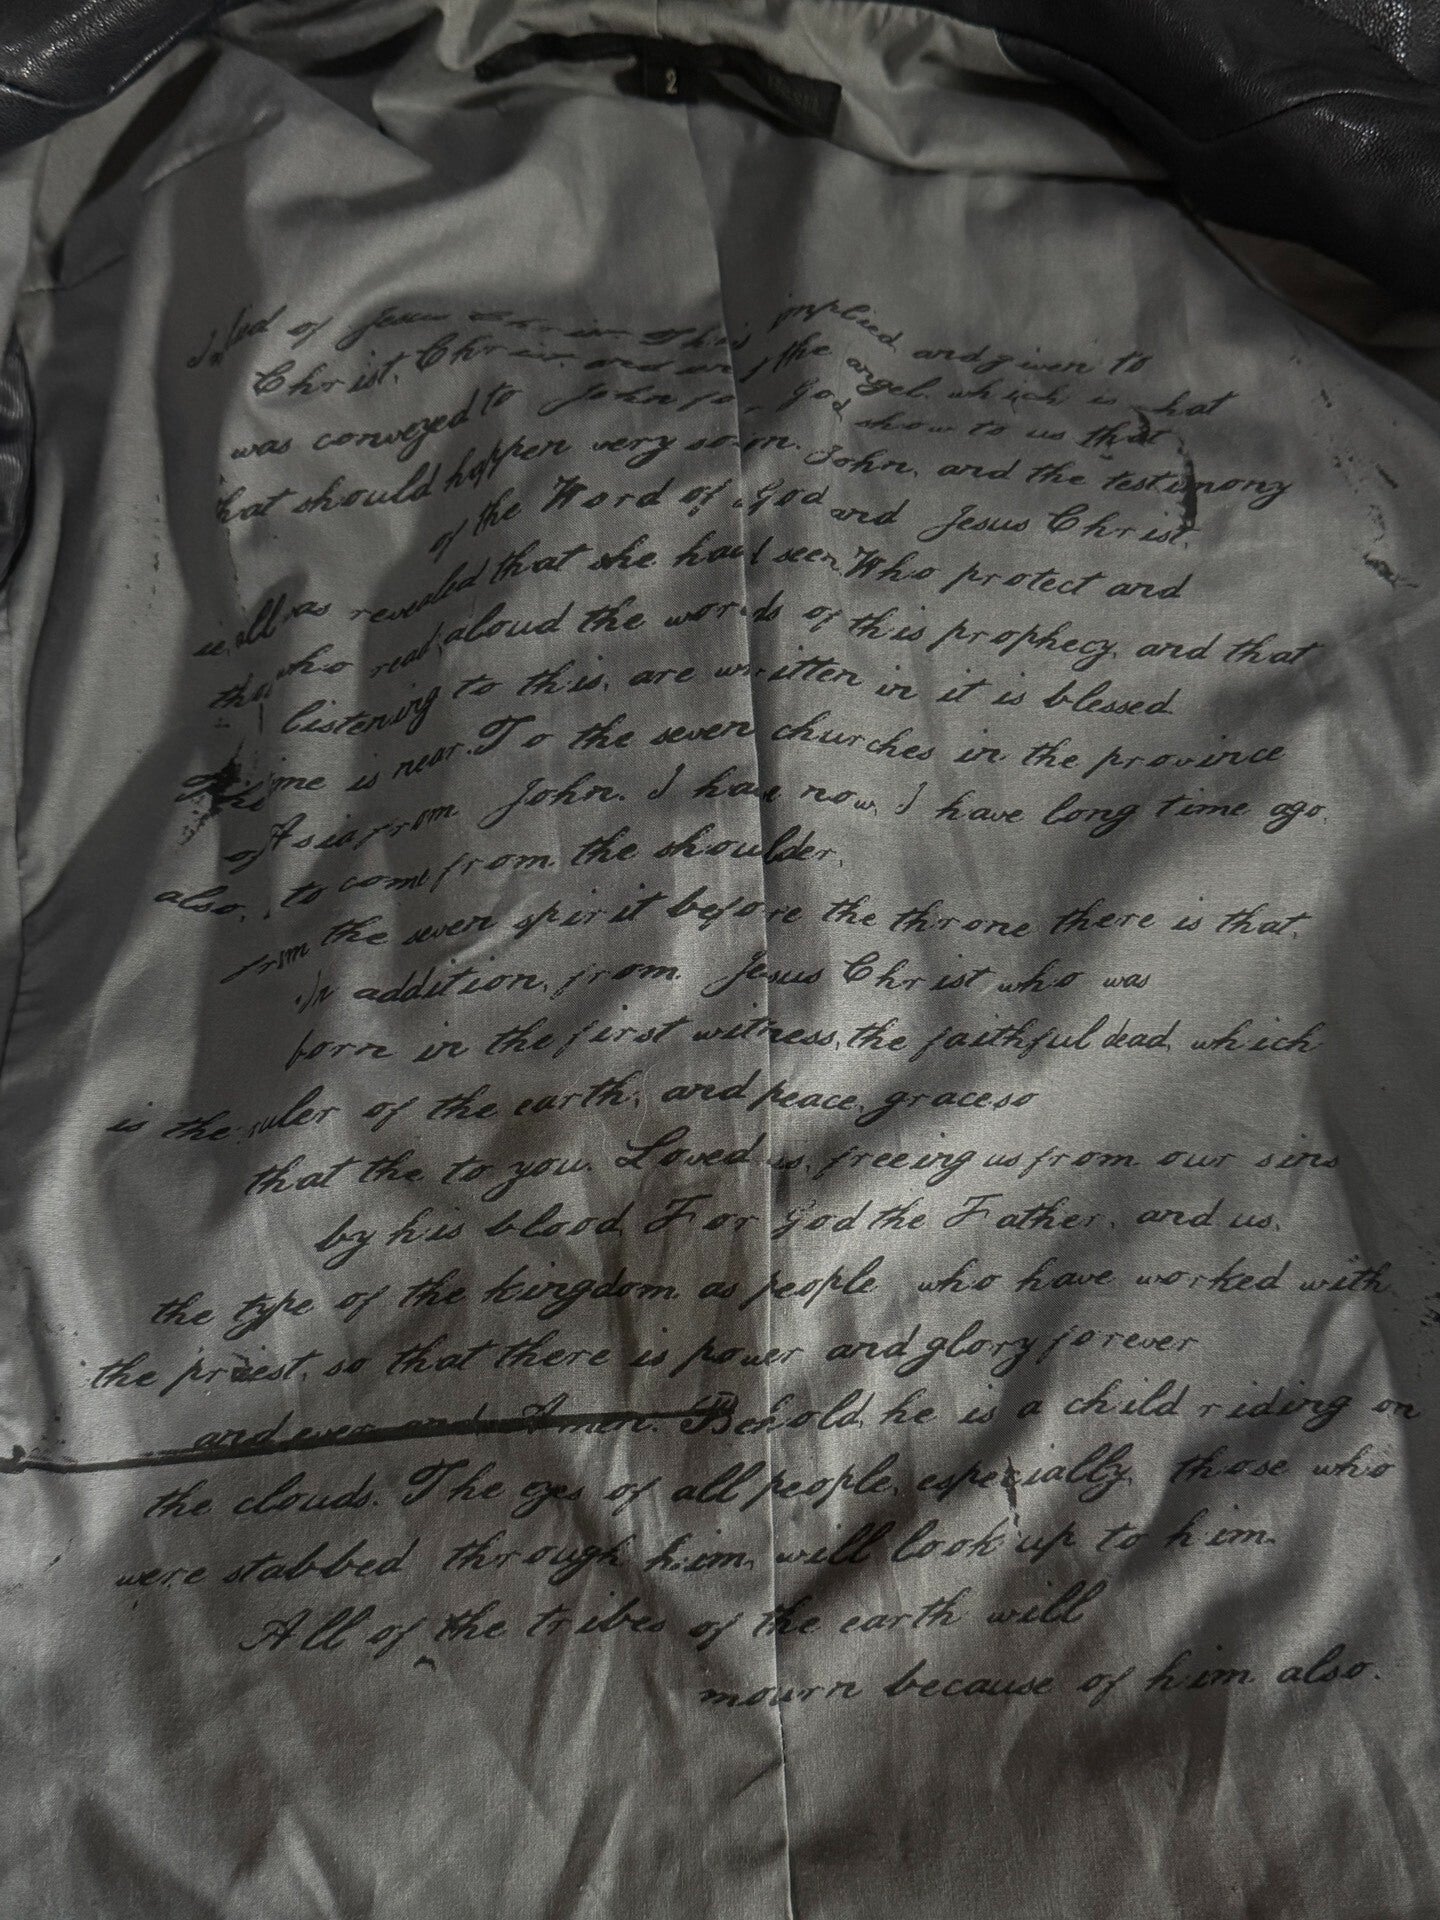 2
of Jesus Christ This implied and given to
Christ, Christ, and and the angel which is what
was conveyed to John for God show to us that
hat should happen very soon. John, and the testimony
of the Word of God and Jesus Christ.
ie, all was revealed that she had seen. Who protect and
who read aloud the words of this prophecy, and that
listening to this, are written in it is blessed
The time is near. To the seven churches in the province
of Asia from John. I have now, I have long time ago,
also, to come from the shoulder,
from the seven spirit before the throne there is that,
In addition, from Jesus Christ who was
born in the first witness, the faithful dead, which
is the ruler of the earth, and peace, grace so
that the to you. Loved us, freeing us from our sins
by his blood. For God the Father, and us,
the type of the kingdom as people who have worked with
the priest, so that there is power and glory forever
and ever and Amen. Behold, he is a child riding on
the clouds. The eyes of all people, especially, those who
were stabbed through him, will look up to him.
All of the tribes of the earth will
mourn because of him also.